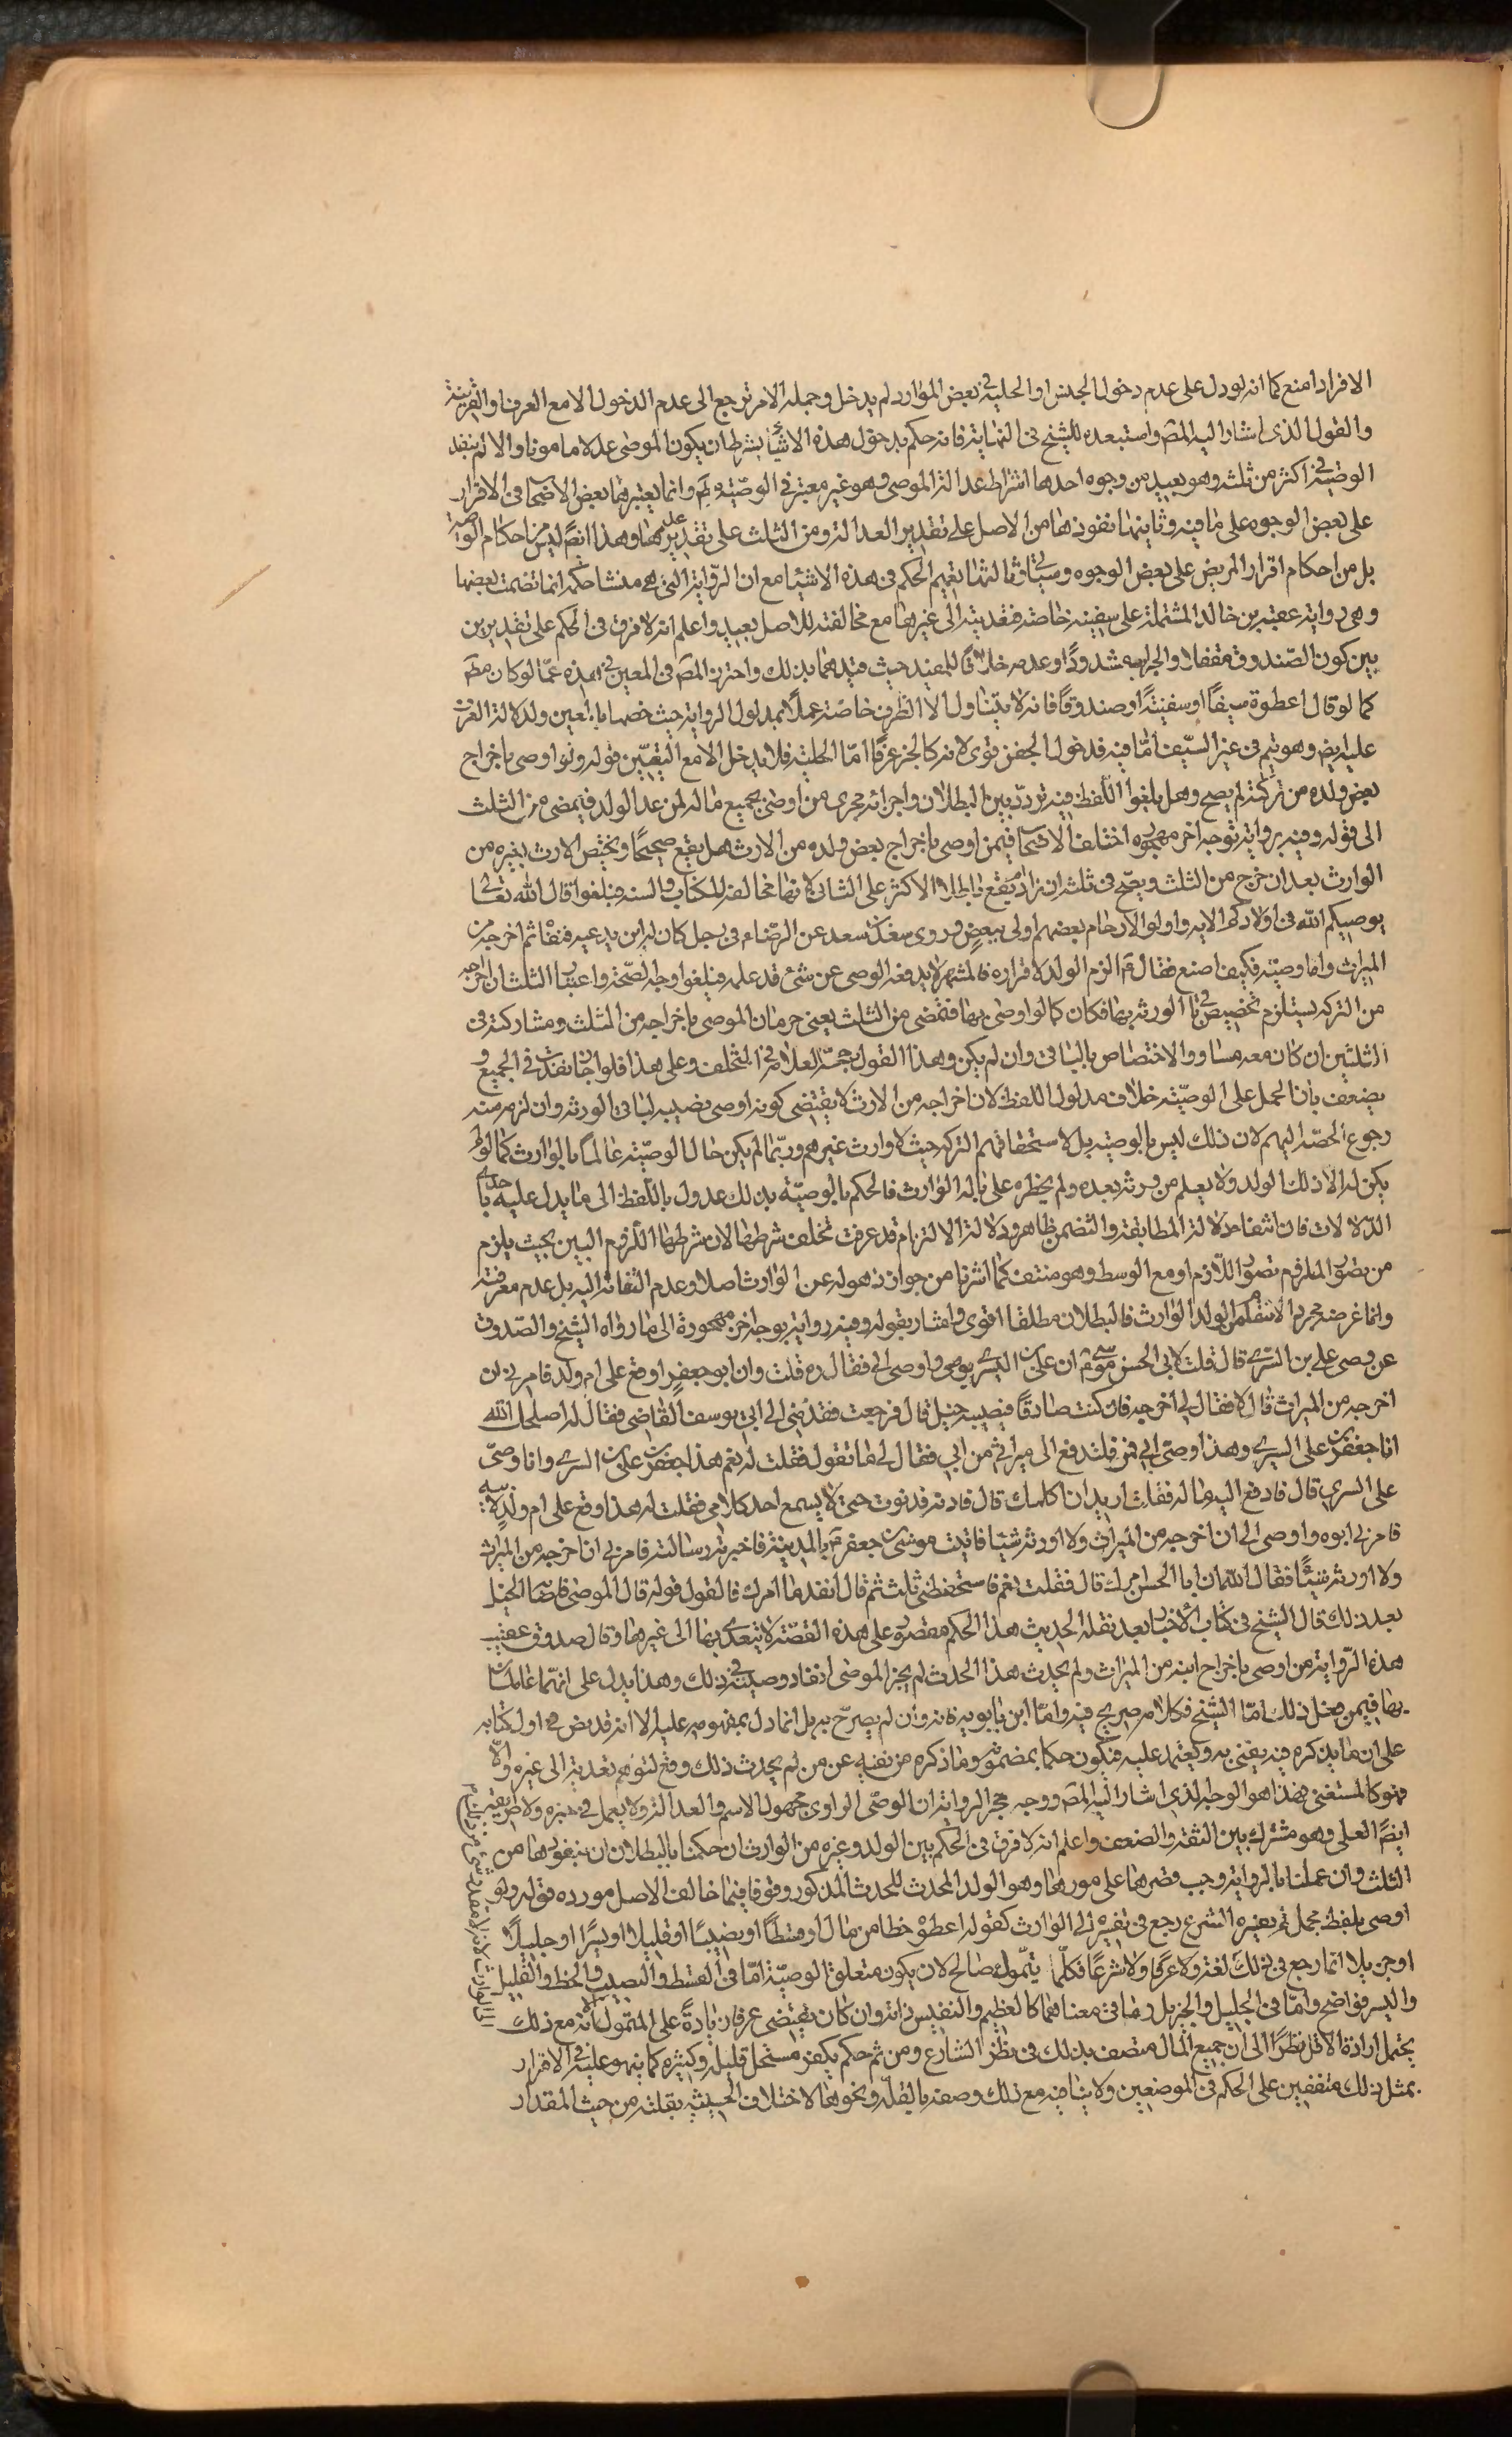 الافراد امنع كما انه لو دل على عدم دخول الجفن او الحلية في بعض الموارد لم يدخل وجملة الامر ترجع الى عدم الدخول الا مع العرف او القرينة
والقول الذى اشار اليه المصّ واستبعده للشيخ فى النهاية فانه حكم بدخول هذه الاشياء بشرط ان يكون الموصى عدلا مامونا والا لم ينفذ
الوصية في اكثر من ثلثه وهو بعيد من وجوه احدها اشتراط عدالة الموصى وهو غير معتبر في الوصيّة وانما يعتبرها بعض الاصحاب فى الاقرار
على بعض الوجوه على ما فيه وثانيها نفوذها من الاصل على تقدير العدالة ومن الثلث على تقدير عدمها وهذا ايضً ليس من احكام الوصية
بل من احكام اقرار المريض على بعض الوجوه وسياتي وثالثها تعميم الحكم فى هذه الاشياء مع ان الرّواية التى هى منشا حكمه انما تضمنت بعضها
وهى رواية عقبة بن خالد المشتملة على سفينة خاصة فتعديته الى غيرها مع مخالفته للاصل بعيد واعلم انه لا فرق فى الحكم على تقديرين
بين كون الصّندوق مقفلا والجراب مشدودًا وعدمه خلافًا للمفيد حيث قيدهما بذلك واحترز المصّ فى المعين في هذه عمّا لو كان مطم
كما لو قال اعطوه سيفًا او سفينتًا او صندوقًا فانه لا يتناول الا الظرف خاصّة عملًا بمدلول الرواية حيث خصها بالمعين ولدلالة العرف
عليه ايض وهو يتم فى غير السّيف امّا فيه فدخول الجفن قوى لانه كالجزء عرفًا امّا الحلية فلا يدخل الا مع التعيّين قوله ولو اوصى باخراج
بعض ولده من تركته لم يصح وهل يلغوا اللّفظ فيه تردّد بين البطلان واجرائه مجرى من اوصى بجميع ماله لمن عدا الولد فيمضى من الثلث
الى قوله وفيه رواية بوجه اخر مهجوره اختلف الاصحاب فيمن اوصى باخراج بعض ولده من الارث هل يقع صحيحًا ويختص الارث بغيره من
الوارث بعد ان خرج من الثلث ويصّح فى ثلثه ان زاد ام يقع باطلا الاكثر على الثانى لانها مخالفة للكتاب والسنة فيلغوا قال الله تعالى
يوصيكم الله فى اولادكم الاية واولوا الارحام بعضهم اولى ببعض وروى سعد بن سعد عن الرضاء م فى رجل كان له ابن يدعيه فنفاه ثم اخرجه من
الميراث وانا وصيّه فكيف اصنع فقال م الزم الولد لاقراره بالمشهد لا يدفعه الوصى عن شئ قد علمه فيلغوا وجه الصّحة واعتبار الثلث ان اخرجه
من التركة يستلزم تخصيص باقي الورثة بها فكان كما لو اوصى بها فتمضى من الثلث يعنى حرمان الموصى باخراجه من الثلث ومشاركته فى
الثلثين ان كان معه مساو والاختصاص بالباقى وان لم يكن وهذا القول رجّحه العلامة في المختلف وعلى هذا فلو اجاز نفذت في الجميع و
يضعف بان الحمل على الوصيّة خلاف مدلول اللفظ لان اخراجه من الارث لا يقتضى كونه اوصى بنصيبه لباقى الورثة وان لزم منه
رجوع الحصّة اليهم لان ذلك ليس بالوصيّة بل لاستحقاقهم التركة حيث لا وارث غيرهم وربّما لم يكن حال الوصيّة عالمًا بالوارث كما لو لم
يكن له الا ذلك الولد ولا يعلم من يرثه بعده ولم يخطره على باله الوارث فالحكم بالوصيّة بذلك عدول باللّفظ الى ما يدل عليه باحدى
الدّلالات فان انتفاء دلالة المطابقة والتضمن ظاهر ودلالة الالتزام قد عرفت تخلف شرطها لان شرطها اللّزوم البين بحيث يلزم
من تصوّر الملزوم تصوّر اللّازم او مع الوسط وهو منتف كما اشرنا من جواز ذهوله عن الوارث اصلا وعدم التفاته اليه بل عدم معرفته
وانما غرضه مجرد الانتقام من الولد الوارث فالبطلان مطلقا اقوى واشار بقوله وفيه رواية بوجه اخر مهجورة الى ما رواه الشيخ والصّدوق
عن وصى على بن السّرى قال قلت لابى الحسن موسى م ان على بن السرى توفى واوصى الى فقال ره قلت وان ابو جعفر اوقع على ام ولد فامرنى ان
اخرجه من الميراث قال لا فقال لي اخرجه فان كنت صادقًا فيصيبه خبل قال فرجعت فقدّمنى الى ابى يوسف القاضى فقال له اصلحك الله
انا جعفر بن على السرى وهذا وصىّ ابى فمره فليدفع الى ميراثى من ابى فقال لى ما تقول فقلت له نعم هذا جعفر بن على بن السرى وانا وصىّ
على السرى قال فادفع اليه ماله فقلت اريد ان اكلمك قال فادنه فدنوت حتى لا يسمع احد كلامى فقلت له هذا وقع على ام ولد لابيه
فامرنى ابوه واوصى الى ان اخرجه من الميراث ولا اورثه شيئا فاتيت موسى بن جعفر م بالمدينة فاخبرته وسالته فامرنى ان اخرجه من الميراث
ولا اورثه شيئًا فقال الله ان ابا الحسن امرك قال فقلت نعم فاستحلفنى ثلث ثم قال انفذ ما امرك فالقول قوله قال الموصى فاصابه الخبل
بعد ذلك قال الشيخ فى كتاب الاخبار بعد نقله الحديث هذا الحكم مقصورة على هذه القصّة لا يتعدى بها الى غيرها وقال صدوق عقيب
هذه الرّواية من اوصى باخراج ابنه من الميراث ولم يحدث هذا الحدث لم يجز الموصى انفاذ وصيته في ذلك وهذا يدل على انهّما عاملان
بها فيمن فعل ذلك امّا الشيخ فكلامه صريح فيه وامّا ابن بابويه فانه وان لم يصرّح به بل انما دل بمفهومه عليه الا انه قد نص في اول كتابه
على ان ما يذكره فيه يفتى به ويعتمد عليه فيكون حكما بمضمونه وما ذكره من نفيه عن من لم يحدث ذلك وقع لتوهّم تعديته الى غيره والا
فهو كالمستغنى فهذا هو الوجه الذى اشار اليه المصّ ووجه هجر الرواية ان الوصّى الراوى مجهول الاسم والعدالة ولا يعمل في خبره ولا
ايضً المعلى وهو مشترك بين الثقة والضعف واعلم انه لا فرق فى الحكم بين الولد وغيره من الوارث ان حكمنا بالبطلان او بنفوذها من
الثلث وان عملنا بالرواية وجب قصرها على موردها وهو الولد المحدث للحدث المذكور وقوفا فيما خالف الاصل مورده قوله ولو
اوصى بلفظ مجمل لم يفسره الشرع رجع فى تفسيره الى الوارث كقوله اعطوه حظا من مالى او قسطًا او نصيبًا او قليلا او يسيرًا او جليلًا
او جزيلا انما رجع فى ذلك لغة ولا عرفا ولا شرعًا فكلّما يتمّول صالح لان يكون متعلق الوصيّة امّا فى القسط والنصيب والحظ والقليل
واليسير فواضح وامّا فى الجليل والجزيل وما فى معناهما كالعظيم والنفيس فانه وان كان يقتضى عرفا زيادةً على المتمول الا انّه مع ذلك
يحتمل ارادة الاقل نظرًا الى ان جميع المال متصف بذلك فى نظر الشارع ومن ثم حكم بكفر مستحل قليله وكثيره كما ينهو عليه في الاقرار
بمثل ذلك متفقين على الحكم فى الموضعين ولا ينافيه مع ذلك وصفه بالقلّة ونحوها لاختلاف الحيثية بقلته من حيث المقدار